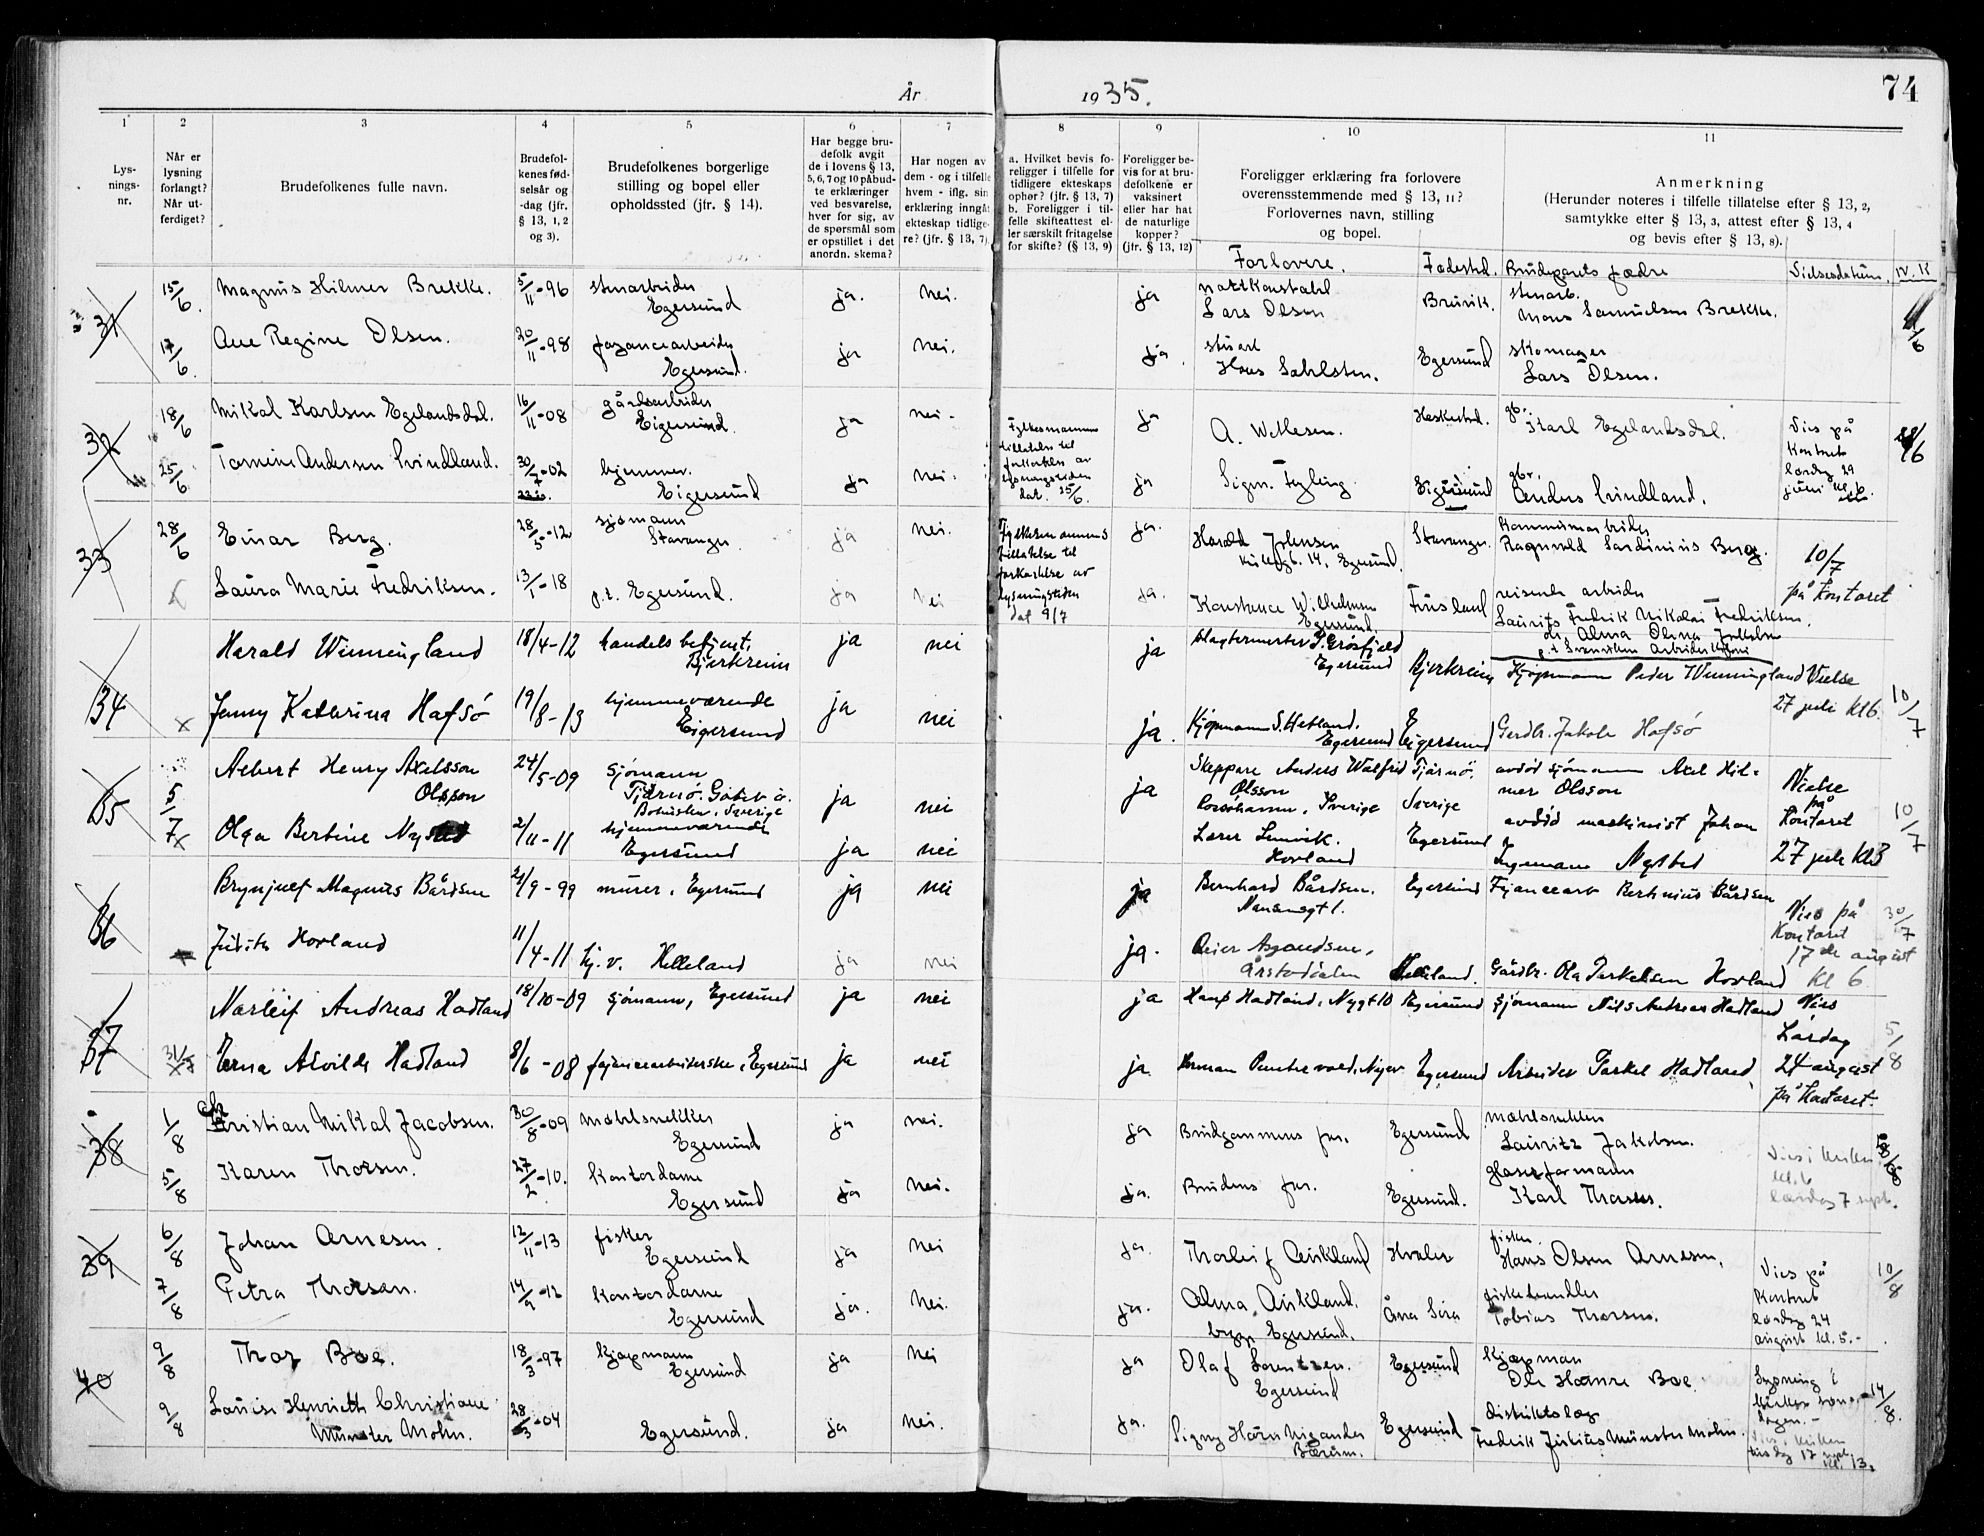 74
År 1935.
1 2 3 4 5 6 7 8 9 10 11
Lys-
nings-
nr.
Når er
lysning
forlangt?
Når ut-
ferdiget?
Brudefolkenes fulle navn.
Brudefol-
kenes fød-
selsår og
-dag (jfr.
§ 13, 1, 2
og 3).
Brudefolkenes borgerlige
stilling og bopel eller
opholdssted (jfr. § 14).
Har begge bru-
defolk avgit
de i lovens § 13,
5, 6, 7 og 10 påbud-
te erklæringer
ved besvarelse,
hver for sig, av
de spørsmål som
er opstillet i det
anordn. skema?
Har nogen av
dem - og i tilfelle
hvem - iflg. sin
erklæring inngåt
ekteskap tidlige-
re? (jfr. § 13, 7)
a. Hvilket bevis fo-
religger i tilfelle for
tidligere ekteskaps
ophør? (jfr. § 13, 7)
b. Foreligger i til-
felle skifteattest el-
ler særskilt fritagelse
for skifte? (§ 13, 9)
Foreligger be-
vis for at bru-
defolkene er
vaksinert
eller har hat
de naturlige
kopper?
(jfr. § 13, 12)
Foreligger erklæring fra forlovere
overensstemmende med § 13, 11?
Forlovernes navn, stilling
og bopel.
Anmerkning
(Herunder noteres i tilfelle tillatelse efter § 13, 2,
samtykke efter § 13, 3, attest efter § 13, 4
og bevis efter § 13, 8).
Forlovere. Fødested. Brudeparets fædre Vielsesdatum. N.K.
31 15/6. Magnus Hilmer Brekke. 5/11-96 stenarbeider ja. Nei. ja nattkonstabel Brusvik. stenarb.
Egersund Lars Olsen Mons Samuelsen Brekke.
17/6. Ane Regine Olsen. 20/11-98 fayancearbeider ja Nei. ja. stuert Egersund skomager
Egersund. Hans Sahlsten. Lars Olsen.
32 18/6 Mikal Karlsen Egelandsdal. 16/11-08 gårdsarbeider ja nei. ja A. Willesen. Heskestad. gb.
Eigersund. Karl Egelandsdal. Vies på
Fylkesmannens
tillatelse til
forkortelse av
lysningstiden
dat. 25/6.
kontoret
lørdag 29
juni kl. 6.
25/6 Tomine Andersen Svindland. 30/7-02 hjemmev. ja nei. ja Sigm. Fyling. Eigersund gbr.
Eigersund Anders Svindland.
33 28/6 Einar Berg. 28/5-12 sjømann ja nei. ja. Harald Johnsen Stavanger. Kommunearbeider
Stavanger. Egersund. Ragnvald Sardinius Berg. 10/7
Fylkesmannens
tillatelse til
forkortelse av
lysningstiden
dat 9/7
på Kontoret
Laura Marie Fredriksen. 13/1-18 p.t. Egersund. ja Nei ja. Konstance Wilhelmsen Finsland reisende arbeider
Egersund. Laurits Fredrik Nikolai Fredriksen.
og Alma Olina Jakobsen
34 Harald Winningland 18/4-12 handelsbetjent, ja nei ja Slagtermester P. Grøsfjeld Bjerkreim Kjøpmann Peder Winningland Vielse
Bjerkreim Egersund 27 juli kl 6. 10/7
Jenny Kathrina Hafsø 19/8-13 hjemmeværende ja nei ja. Kjøpmann S. Hetland, Eigersund Gardbr. Jakob Hafsø
Eigersund Egersund
35 5/7 Aebert Henry Axelsson 24/5-09 Sjømann ja nei ja Skeppare Anders Walfrid Tjärnö. avdød sjømann Axel Hil-
Olsson Tjärnö. Olsson Sverige mer Olsson Vielse
Bohuslen, Sverige på
Kontoret
27 juli kl 3 10/7
Olga Bertine Nysted 2/11-11 hjemmeværende ja nei Egersund avdød maskinist Johan
Egersund Hovland Ingemann Nysted
36 Brynjulf Magnus Bårdsen 21/9-99 murer, Egersund ja nei ja Bernhard Bårdsen. Egersund Fajancearb Bertinius Bårdsen
Vies på
Kontoret
17de august
kl 6 30/7
Judith Hovland 11/4-11 hj.v. Helleland ja nei ja. Årstaddalen Helleland. Gårdbr. Ola Torkelsen Hovland
37 Narleif Andreas Hadland 18/10-09 sjømann, Egersund ja nei ja Hans Hadland, Nygt 10 Egersund Sjømann Nils Andreas Hadland Vies
Lørdag
24 august
på Kontoret. 5/8
31/7 Erna Alvilde Hadland 8/6-08 fajancearbeiderske, Egersund ja nei ja Egersund Arbeider Torkel Hadland
38 1/8 Christian Mikal Jacobsen. 30/8-09 møbelsnekker ja nei. ja Brudgommens far. Egersund møbelsnekker
Egersund Lauritz Jakobsen.
5/8 Karen Thorsen. 27/2-10. kontordame ja nei. ja. Brudens far. Egersund. glasserformann
Egersund Karl Thorsen. Vies i kirken
kl. 6
lørdag 7 sept.
39 6/8 Johan Arnesen. 12/11-13 fisker ja nei ja. Thorleif Aurkland Hvaler fisker.
Egersund Hans Olsen Arnesen.
7/8 Petra Thorsen. 14/9-12 kontordame ja. Nei. ja. Alma Aurkland. Åna Sira fiskehandler
Egersund Egersund. Tobias Thorsen. Vies på
kontoret
lørdag 24
august kl. 5.- 10/8
40 9/8 Thor Boe. 18/3-97 kjøpmann ja Nei ja Olaf Lorentzen. Egersund Kjøpman
Egersund Egersund Ole Hanre Boe.
9/8 Louise Henriette Christiane 28/3-04 Egersund. ja nei. ja. Signy Bærum. Egersund distriktslæge
Münster Mohn. Fredrik Julius Münster Mohn. Lysning i
kirken søn-
dagen.-
Vies i kirken
tirsdag 17 sept.
kl. 13. 14/8.